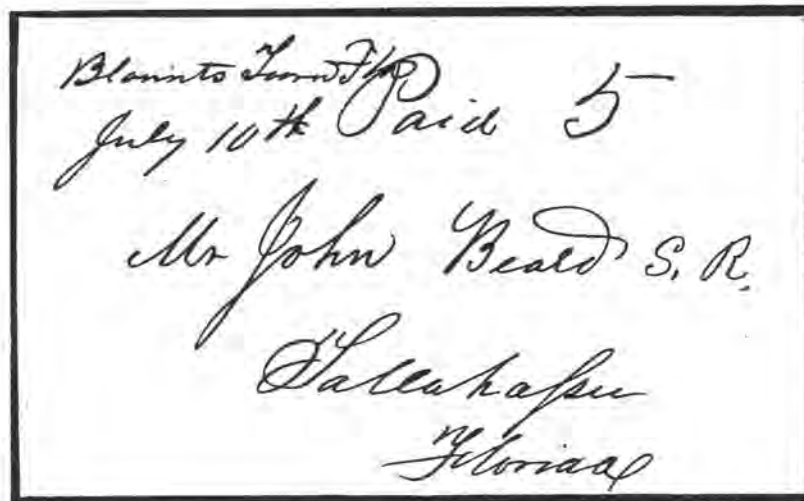 Blounts Town Fla
July 10th Paid 5
Mr John Beard S. R.
Tallahassee
Florida